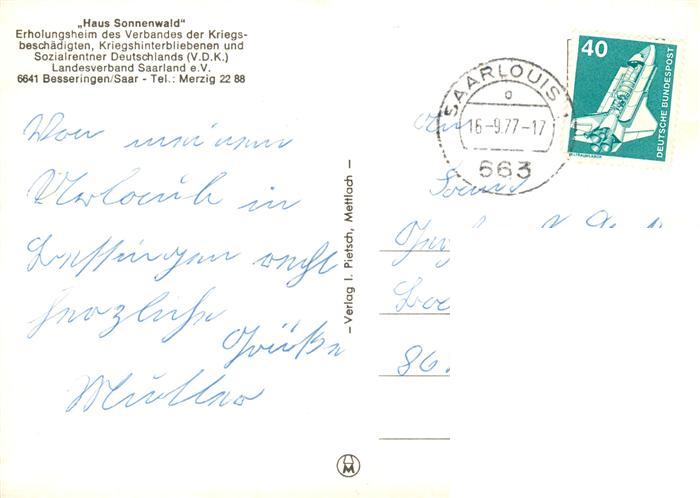 „Haus Sonnenwald"
Erholungsheim des Verbandes der Kriegs-
beschädigten, Kriegshinterbliebenen und
Sozialrentner Deutschlands (V.D.K.)
Landesverband Saarland e.V.
6641 Besseringen/Saar - Tel.: Merzig 22 88
Von meinem
Urlaub in
Bessringen recht
herzliche
Grüße
Mutter
– Verlag I. Pietsch, Mettlach –
SAARLOUIS 1
a
16-9.77-17
663
40
DEUTSCHE BUNDESPOST
an
86.
M